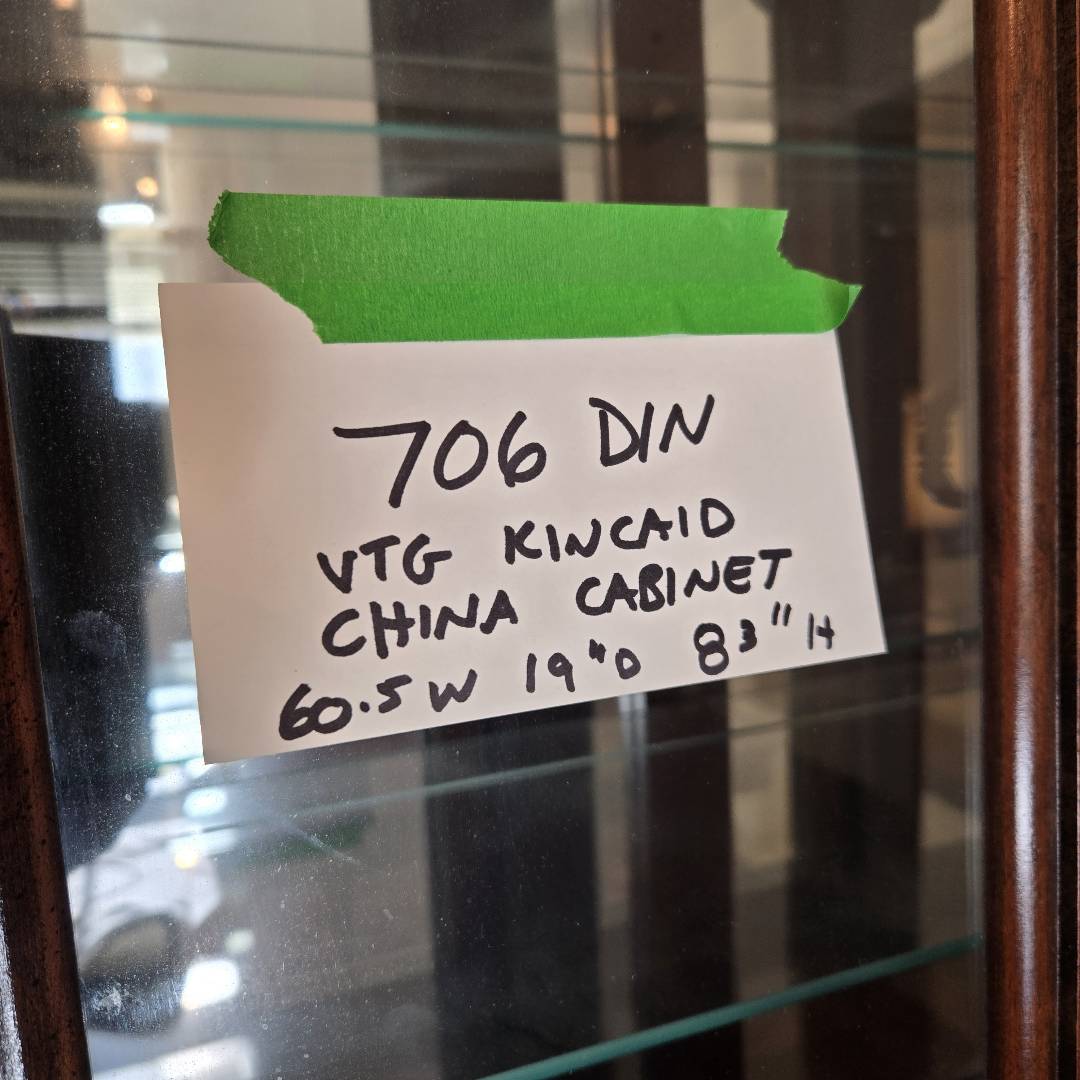 706 DIN
VTG KINCAID
CHINA CABINET
60.5 W 19"D 83" H